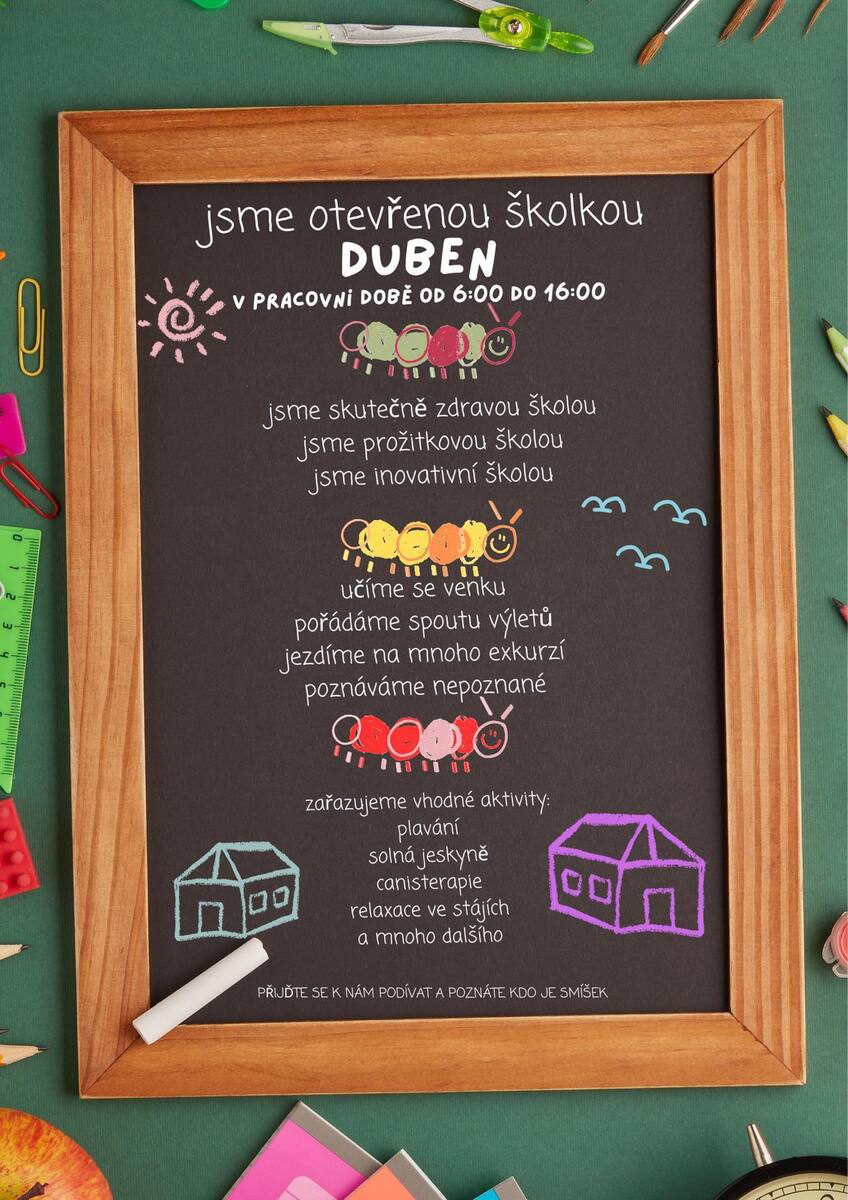 jsme otevřenou školkou
DUBEN
V PRACOVNí DOBĚ OD 6:00 DO 16:00
jsme skutečně zdravou školou
jsme prožitkovou školou
jsme inovativní školou
učíme se venku
pořádáme spoutu výletů
jezdíme na mnoho exkurzí
poznáváme nepoznané
zařazujeme vhodné aktivity:
plavání
solná jeskyně
canisterapie
relaxace ve stájích
a mnoho dalšího
PŘIJĎTE SE K NÁM PODÍVAT A POZNÁTE KDO JE SMÍŠEK
0
1
2
3
4
5